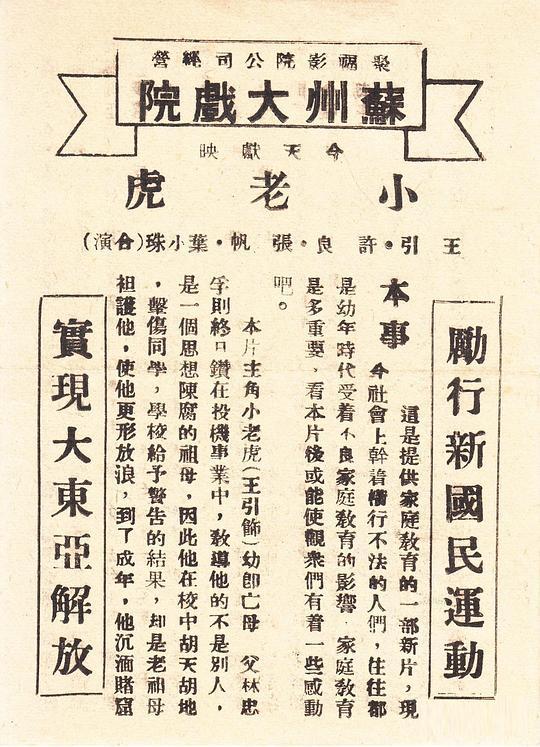 聚福影院公司經營
蘇州大戲院
今天獻映
小老虎
王引•許良•張帆•葉小珠(合演)
勵行新國民運動
本事
這是提供家庭教育的一部新片，現
今社會上幹着橫行不法的人們，往往都
是幼年時代受着不良家庭教育的影響，家庭教育
是多重要，看本片後或能使觀衆們有着一些感動
吧。
本片主角小老虎(王引飾)幼卽亡母 父林忠
孚則終日鑽在投機事業中，教導他的不是別人，
是一個思想陳腐的祖母，因此他在校中胡天胡地
，擊傷同學，學校給予警告的結果，却是老祖母
袒護他，使他更形放浪，到了成年，他沉湎賭窟
實現大東亞解放